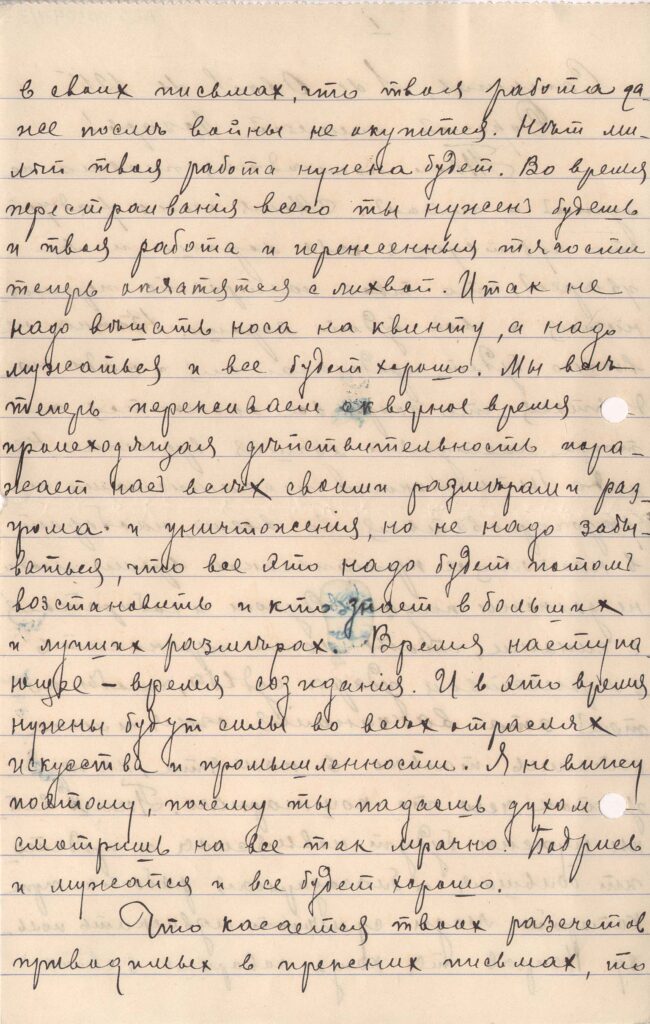 в своих письмах, что твоя работа да-
же послѣ войны не окупится. Нѣт ми-
лый твоя работа нужена будет. Во время
перестраиванія всего ты нуженъ будешь
и твоя работа и перенесенныя тягости
теперь окупятся с лихвой. Итак не
надо вѣшать носа на квинту, а надо
мужаться и все будет хорошо. Мы всѣ
теперь переживаем скверное время
происходящая дѣйствительность пора-
жает насъ всѣх своими размѣрами раз-
грома и уничтоженія, но не надо забы-
ваться, что все это надо будет потомъ
возстановить и кто знает в больших
и лучших размѣрах. Время наступа-
ющее – время созиданія. И в это время
нужены будут силы во всѣх отраслях
искусства и промышленности. Я не вижу
поэтому, почему ты падаешь духом
смотришь на все так мрачно. Бодрись
и мужайся и все будет хорошо.
Что касается твоих разсчетов
приводимых в прежних письмах, то